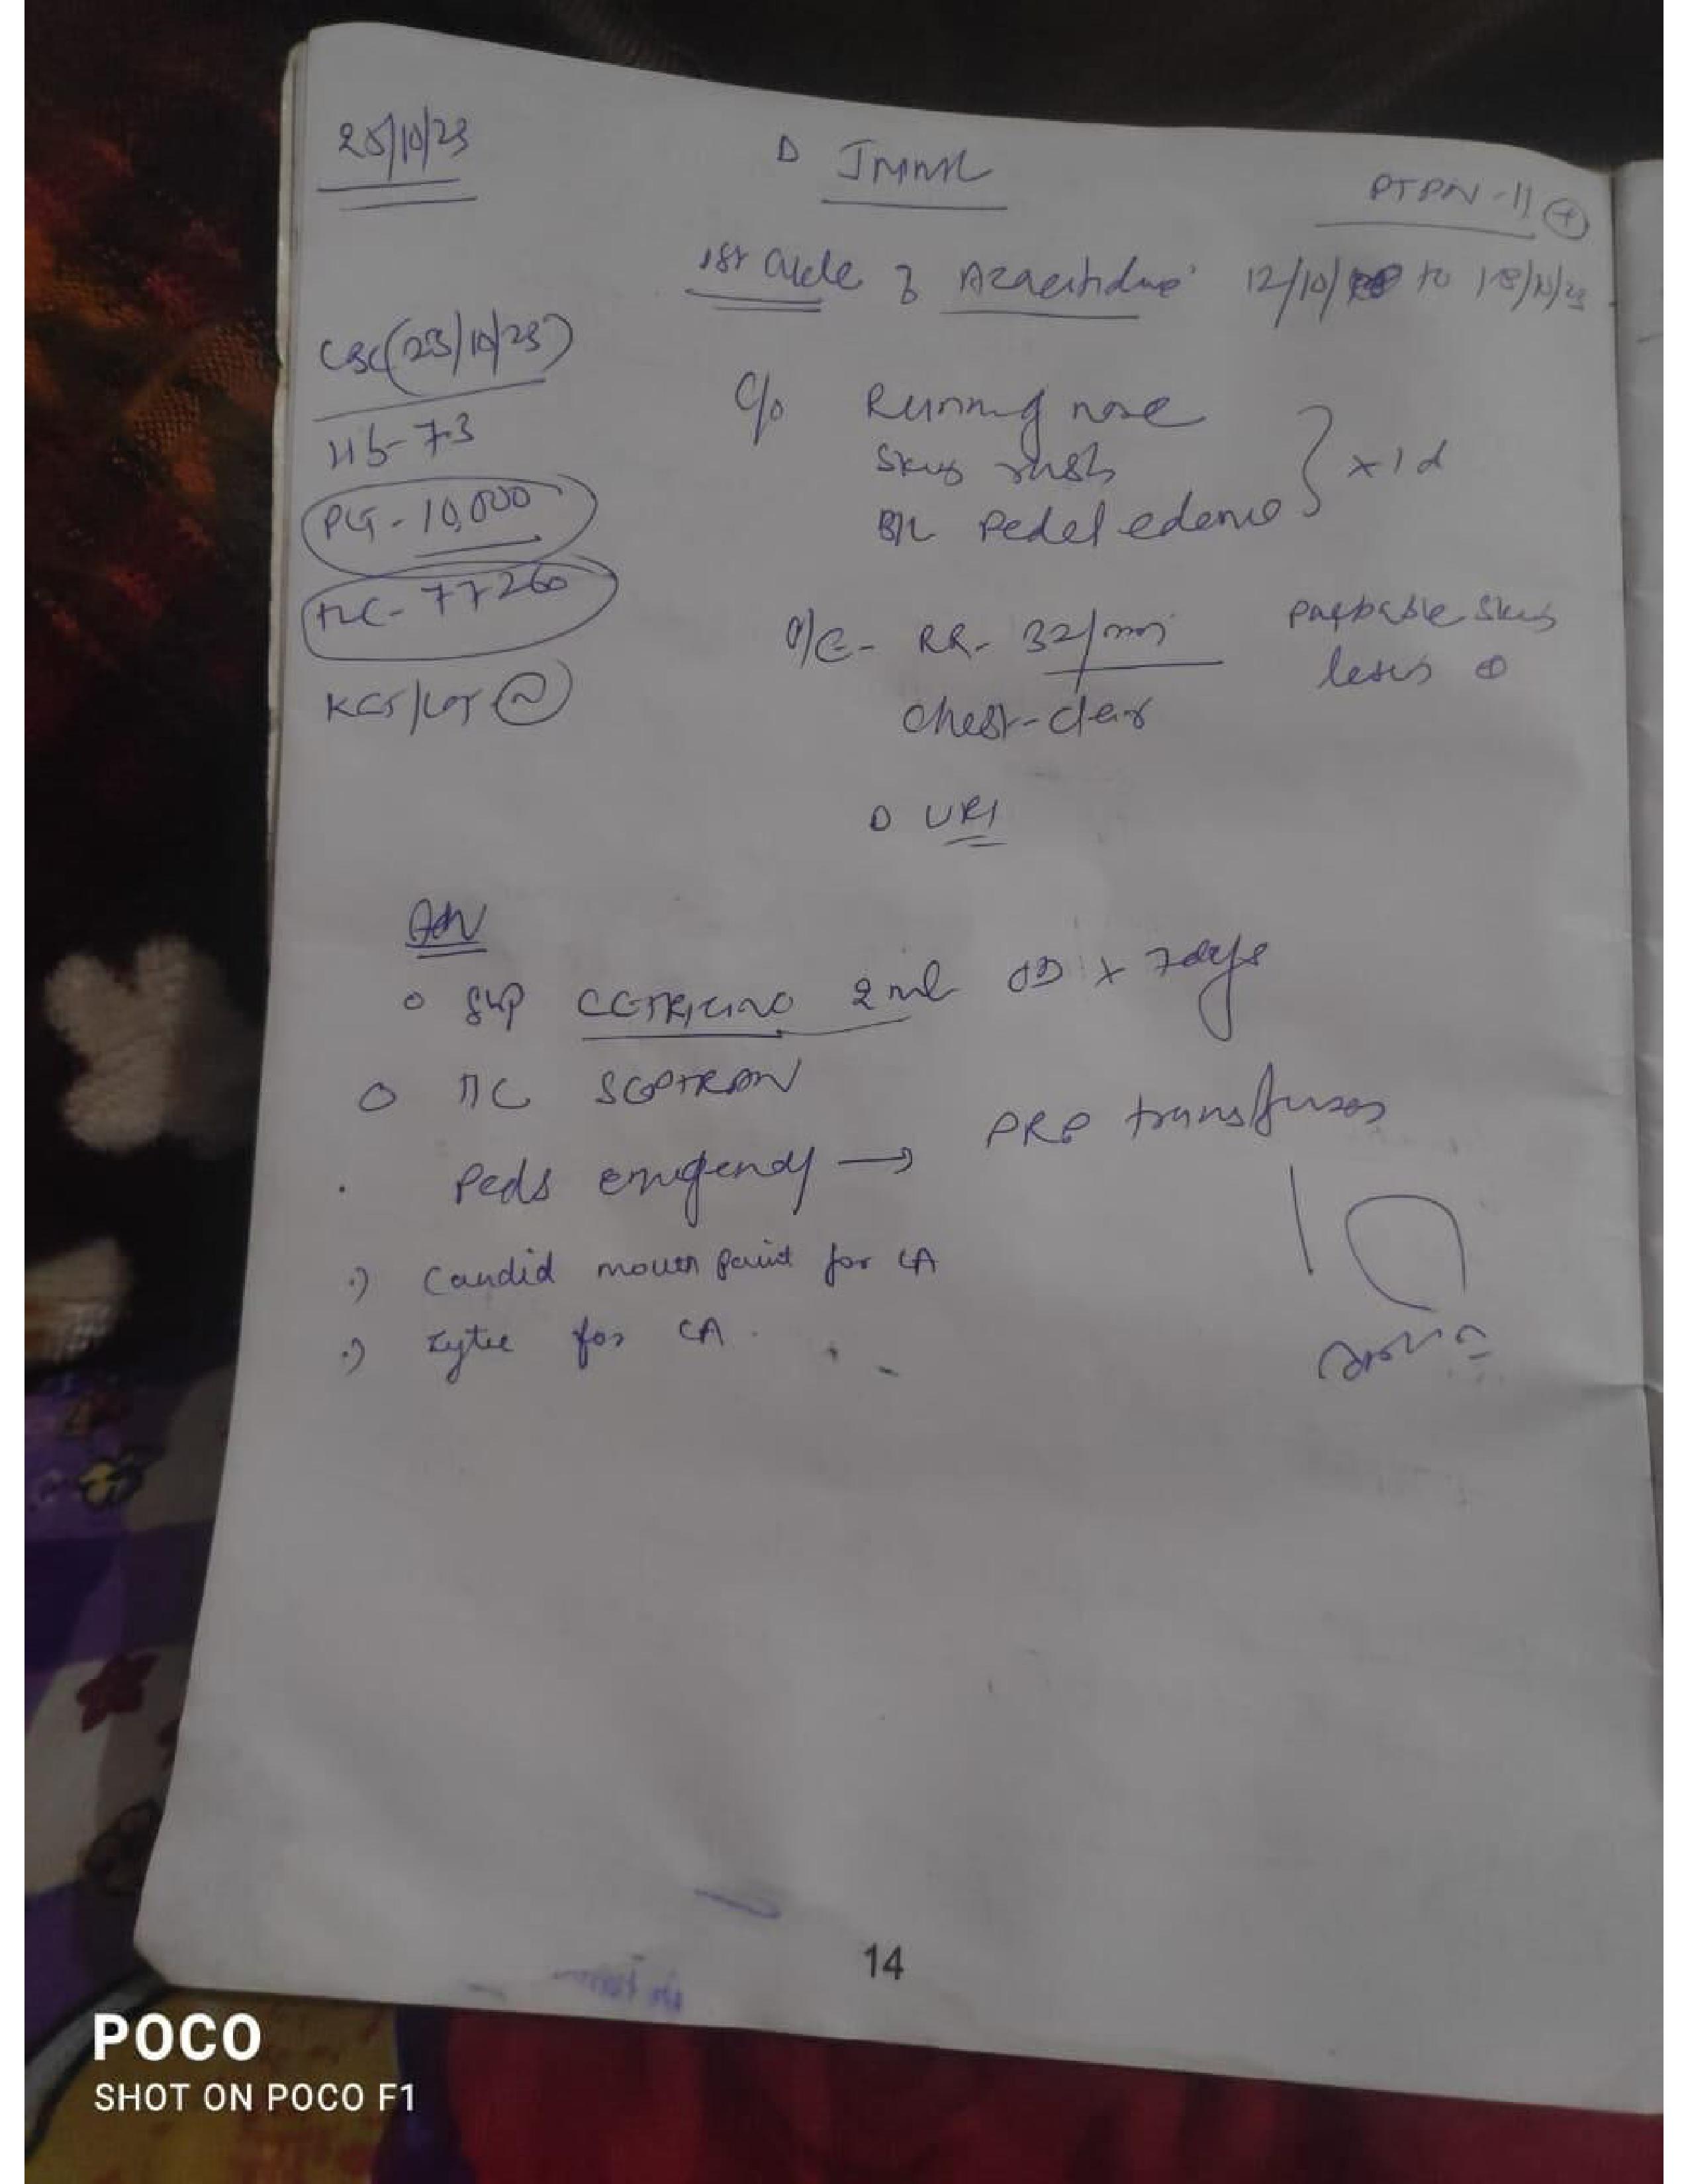 25/10/23
D JMML
PTPN-11 (+)
1st cycle of Azacitidine 12/10/ to 18/10/23
CBC (23/10/23)
Hb-7.3
PLT-10,000
TLC-77260
KFT/LFT (N)
C/o Running nose
Skin rash
B/L Pedal edema } x 1d
O/E- RR- 32/min
Palpable skin
lesions ⊕
Chest-clear
D URI
Adv
Syp CETRIZINE 2 ml OD x 7days
TTC SEPTRAN
Peds emergency → PRP transfusion
Candid mouth paint for LA
Zytee for LA
14
POCO
SHOT ON POCO F1